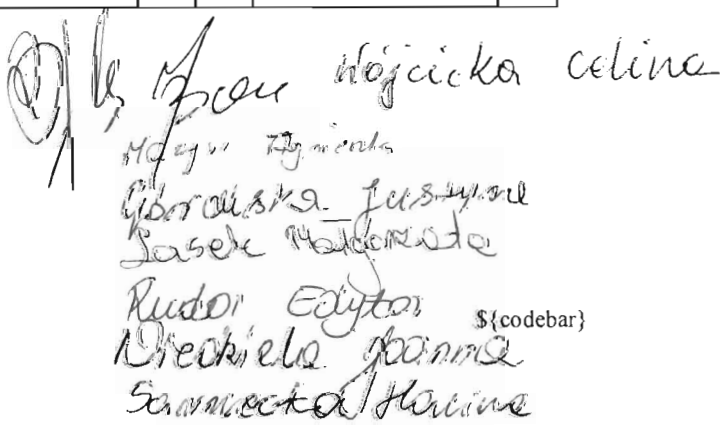 Wójcicka Celina
Mazur Agnieszka
Justyna
Lasek Małgorzata
Rudoi Edyta
${codebar}
Niedziela Joanna
Sarnecka Hanina